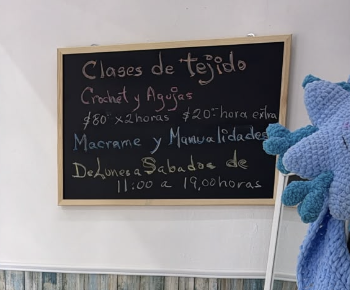 Clases de tejido
Crochet y Agujas
$80- x 2 horas $20- hora extra
Macrame y Manualidades
De Lunes a Sabados de
11:00 a 19,00 horas